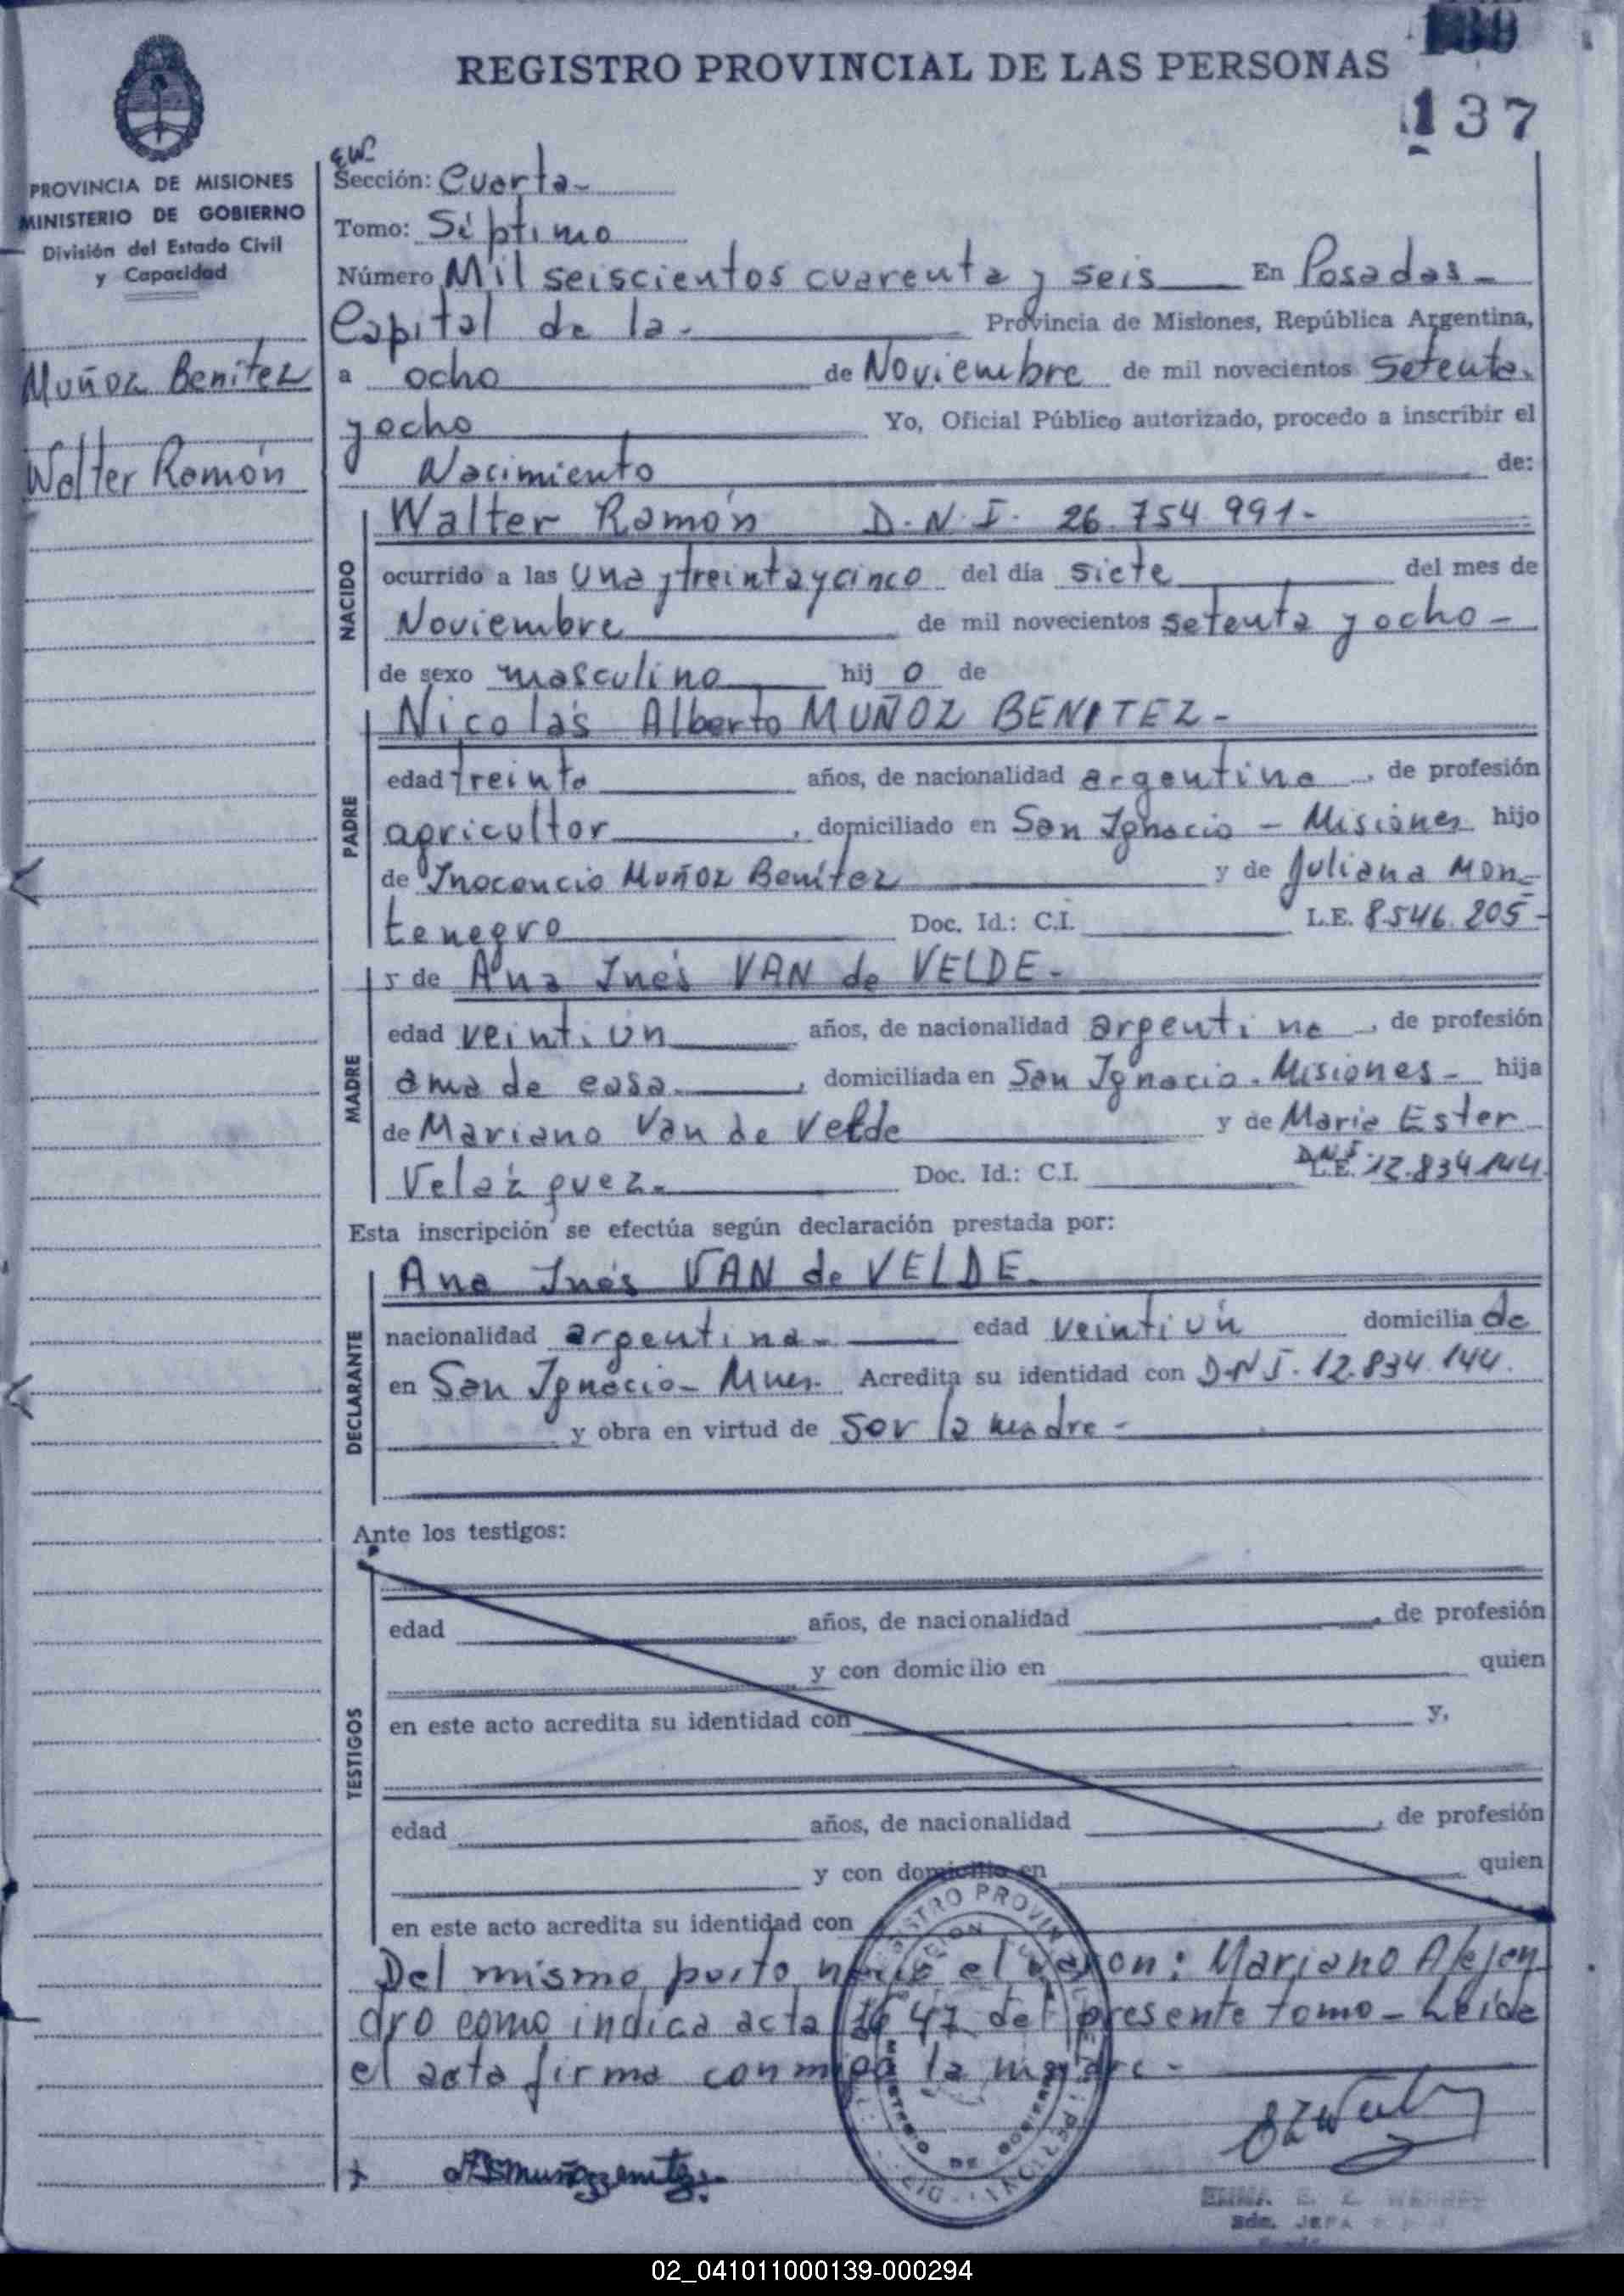 REGISTRO PROVINCIAL DE LAS PERSONAS
137
PROVINCIA DE MISIONES
MINISTERIO DE GOBIERNO
División del Estado Civil
y Capacidad
Muñoz Benítez
Walter Ramón
Sección: Cuarta-
Tomo: Séptimo
Número Mil seiscientos cuarenta y seis En Posadas-
Capital de la- Provincia de Misiones, República Argentina,
a ocho de Noviembre de mil novecientos setenta
y ocho Yo, Oficial Público autorizado, procedo a inscribir el
Nacimiento de:
NACIDO
Walter Ramón D.N.I. 26.754.991-
ocurrido a las una y treinta y cinco del día siete del mes de
Noviembre de mil novecientos setenta y ocho-
de sexo masculino hijo de
PADRE
Nicolás Alberto MUÑOZ BENITEZ-
edad treinta años, de nacionalidad argentina, de profesión
agricultor, domiciliado en San Ignacio - Misiones hijo
de Inocencio Muñoz Benítez y de Juliana Mon=
tenegro Doc. Id.: C.I. L.E. 8.546.205-
MADRE
y de Ana Inés VAN de VELDE-
edad veintiún años, de nacionalidad argentina, de profesión
ama de casa, domiciliada en San Ignacio. Misiones- hija
de Mariano Van de Velde y de María Ester
Velázquez- Doc. Id.: C.I. D.N.I. L.E. 12.834.144.
Esta inscripción se efectúa según declaración prestada por:
DECLARANTE
Ana Inés VAN de VELDE
nacionalidad argentina- edad veintiún domiciliade
en San Ignacio- Mnes. Acredita su identidad con D.N.I. 12.834.144.
y obra en virtud de ser la madre-
Ante los testigos:
TESTIGOS
edad años, de nacionalidad, de profesión
y con domicilio en quien
en este acto acredita su identidad con y,
edad años, de nacionalidad, de profesión
y con domicilio en quien
en este acto acredita su identidad con
Del mismo parto nació el varon: Mariano Alejan
dro como indica acta 1647 del presente tomo- Leida
el acta firma conmigo la madre-
02_041011000139-000294